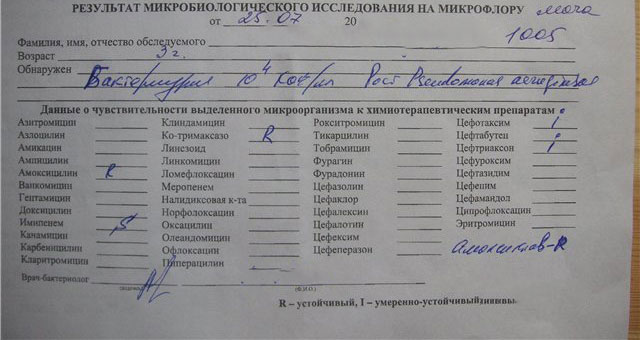 РЕЗУЛЬТАТ МИКРОБИОЛОГИЧЕСКОГО ИССЛЕДОВАНИЯ НА МИКРОФЛОРУ моча
от 25.07 20
1005
Фамилия, имя, отчество обследуемого
Возраст 3 г.
Обнаружен Бактериурия 10⁴ КОЕ/мл Рост Pseudomonas aeruginosa
Данные о чувствительности выделенного микроорганизма к химиотерапевтическим препаратам
Азитромицин Клиндамицин Рокситромицин Цефотаксим i
Азлоцилин Ко-тримаксазо R Тикарцилин Цефтабутен i
Амикацин Линезоид Тобрамицин Цефтриаксон i
Ампицилин Линкомицин Фурагин Цефуроксим
Амоксицилин R Ломефлоксацин Фурадонин Цефтазидим
Ванкомицин Меропенем Цефазолин Цефепим
Гентамицин Налидиксовая к-та Цефаклор Цефамандол
Доксицилин Норфолоксацин Цефалексин Ципрофлоксацин
Имипенем S Оксацилин Цефалотин Эритромицин
Канамицин Олеандомицин Цефексим
Карбеницилин Офлоксацин Цефеперазон Амоксиклав-R
Кларитромицин Пиперацилин
Врач-бактериолог
(Ф.И.О.)
R – устойчивый, I – умеренно-устойчивый